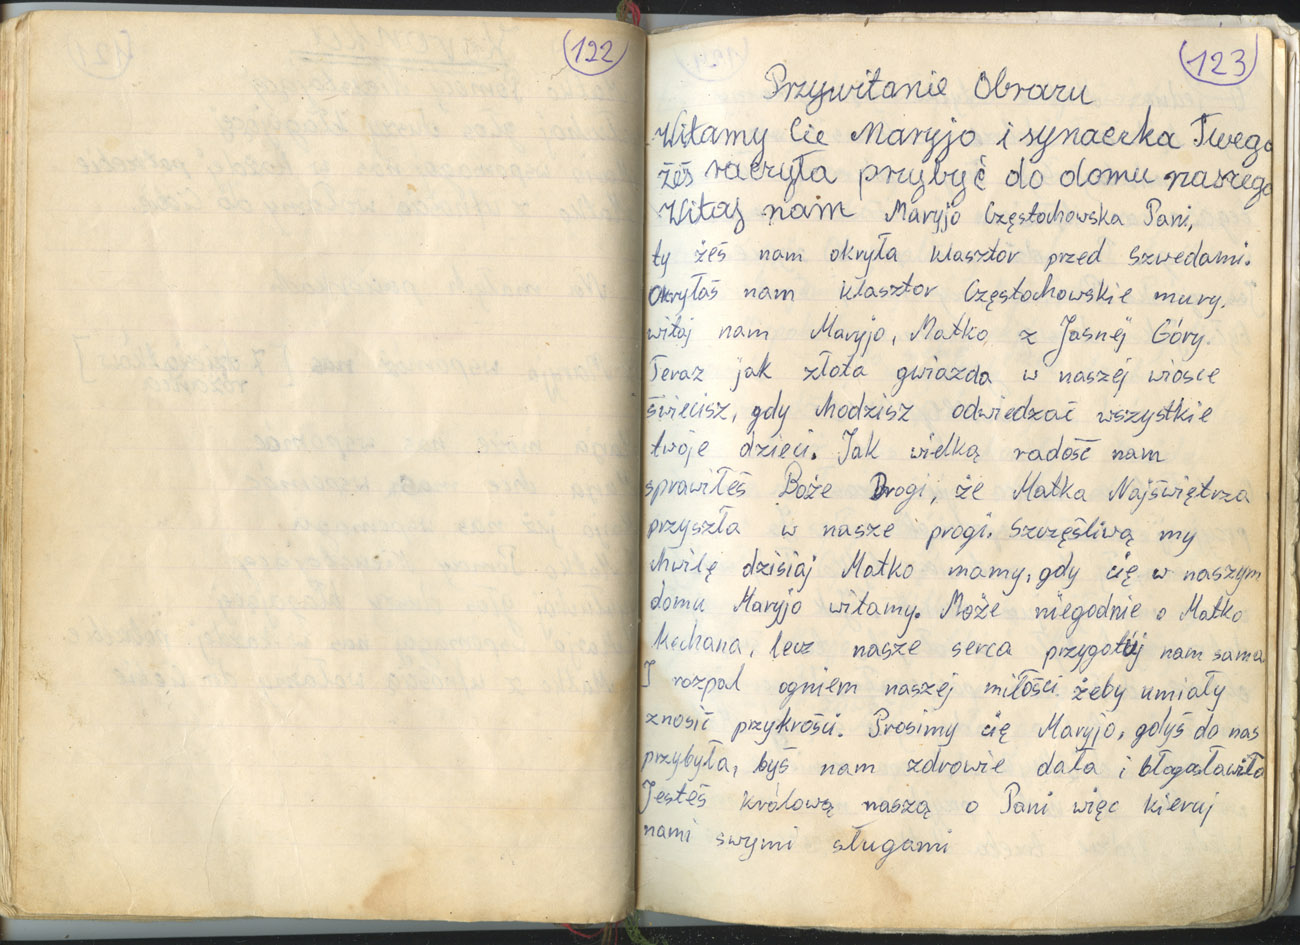 122
123
Przywitanie Obrazu
Witamy Cie Maryjo i synaczka Twego
żeś raczyła przybyć do domu naszego
Witaj nam Maryjo Częstochowska Pani,
ty żeś nam okryła klasztor przed Szwedami.
Okryłaś nam klasztor Częstochowskie mury.
witaj nam Maryjo, Matko z Jasnéj Góry.
Teraz jak złota gwiazda w naszéj wiosce
świecisz, gdy chodzisz odwiedzać wszystkie
twoje dzieci. Jak wielką radość nam
sprawiłeś Boże Drogi, że Matka Najświętrza
przyszła w nasze progi. Szczęśliwą my
chwilę dzisiaj Matko mamy, gdy cię w naszym
domu Maryjo witamy. Może niegodnie o Matko
kochana, lecz nasze serca przygotuj nam sama
I rozpal ogniem naszéj miłości żeby umiały
znosić przykrości. Prosimy cię Maryjo, gdyś do nas
przybyła, byś nam zdrowie dała i błogosławiła
Jesteś królową naszą o Pani więc kieruj
nami swymi sługami